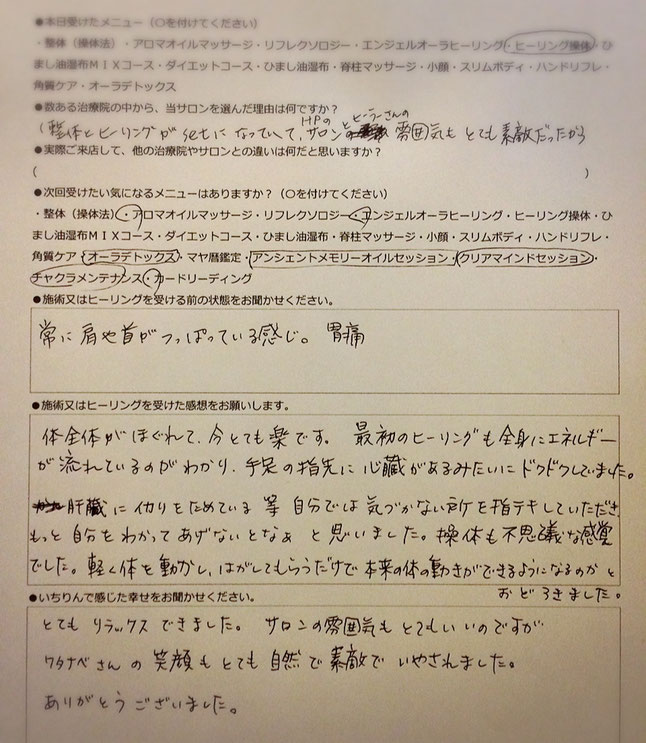 ●本日受けたメニュー（〇を付けてください）
・整体（操体法）・アロマオイルマッサージ・リフレクソロジー・エンジェルオーラヒーリング・ヒーリング操体・ひ
まし油湿布ＭＩＸコース・ダイエットコース・ひまし油湿布・脊柱マッサージ・小顔・スリムボディ・ハンドリフレ・
角質ケア・オーラデトックス
●数ある治療院の中から、当サロンを選んだ理由は何ですか？
HPの とヒーラーさんの
（整体とヒーリングがsetになっていて、サロンの 雰囲気もとても素敵だったから
●実際ご来店して、他の治療院やサロンとの違いは何だと思いますか？
（ ）
●次回受けたい気になるメニューはありますか？（〇を付けてください）
・整体（操体法）・アロマオイルマッサージ・リフレクソロジー・エンジェルオーラヒーリング・ヒーリング操体・ひ
まし油湿布ＭＩＸコース・ダイエットコース・ひまし油湿布・脊柱マッサージ・小顔・スリムボディ・ハンドリフレ・
角質ケア・オーラデトックス・マヤ暦鑑定・アンシェントメモリーオイルセッション・クリアマインドセッション・
チャクラメンテナンス・カードリーディング
●施術又はヒーリングを受ける前の状態をお聞かせください。
常に肩や首がつっぱっている感じ。 胃痛
●施術又はヒーリングを受けた感想をお願いします。
体全体がほぐれて、今とても楽です。 最初のヒーリングも全身にエネルギー
が流れているのがわかり、手足の指先に心臓があるみたいにドクドクしていました。
肝臓にイカリをためている等 自分では気づかない所を指テキしていただき
もっと自分をわかってあげないとなぁと思いました。操体も不思議な感覚
でした。軽く体を動かし、はがしてもらうだけで本来の体の動きができるようになるのかと
おどろきました。
●いちりんで感じた幸せをお聞かせください。
とてもリラックスできました。 サロンの雰囲気もとてもいいのですが
ワタナベさんの笑顔もとても自然で素敵でいやされました。
ありがとうございました。